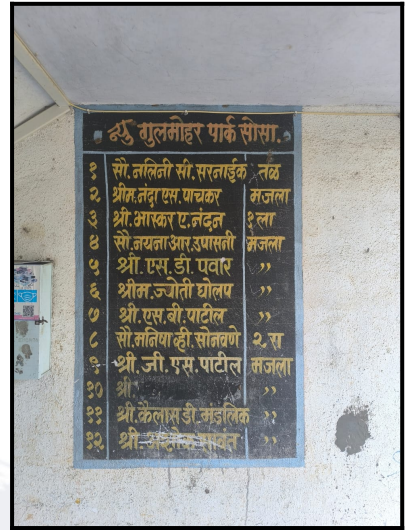 न्यु गुलमोहर पार्क सोसा.
१ सौ. नलिनी सी. सरनाईक तळ
२ श्रीम. नंदा एस. पाचकर मजला
३ श्री. भास्कर ए. नंदन १ला
४ सौ. नयना आर. उपासनी मजला
५ श्री. एस. डी. पवार ,,
६ श्रीम. ज्योती घोलप ,,
७ श्री. एस. बी. पाटील ,,
८ सौ. मनिषा व्ही. सोनवणे २ रा
९ श्री. जी. एस. पाटील मजला
१० श्री ,,
११ श्री. कैलास डी. मंडलिक ,,
१२ श्री. सावंत ,,